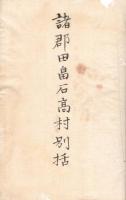 諸郡田畠石高村別括